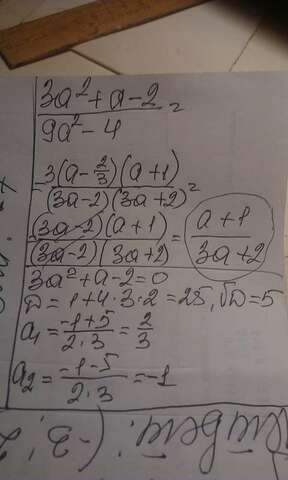 (3a²+a-2)/(9a²-4) =
= 3(a-2/3)(a+1)/((3a-2)(3a+2)) =
(3a-2)(a+1)/((3a-2)(3a+2)) = (a+1)/(3a+2)
3a²+a-2=0
D = 1+4·3·2=25, √D=5
a₁ = (-1+5)/(2·3) = 2/3
a₂ = (-1-5)/(2·3) = -1